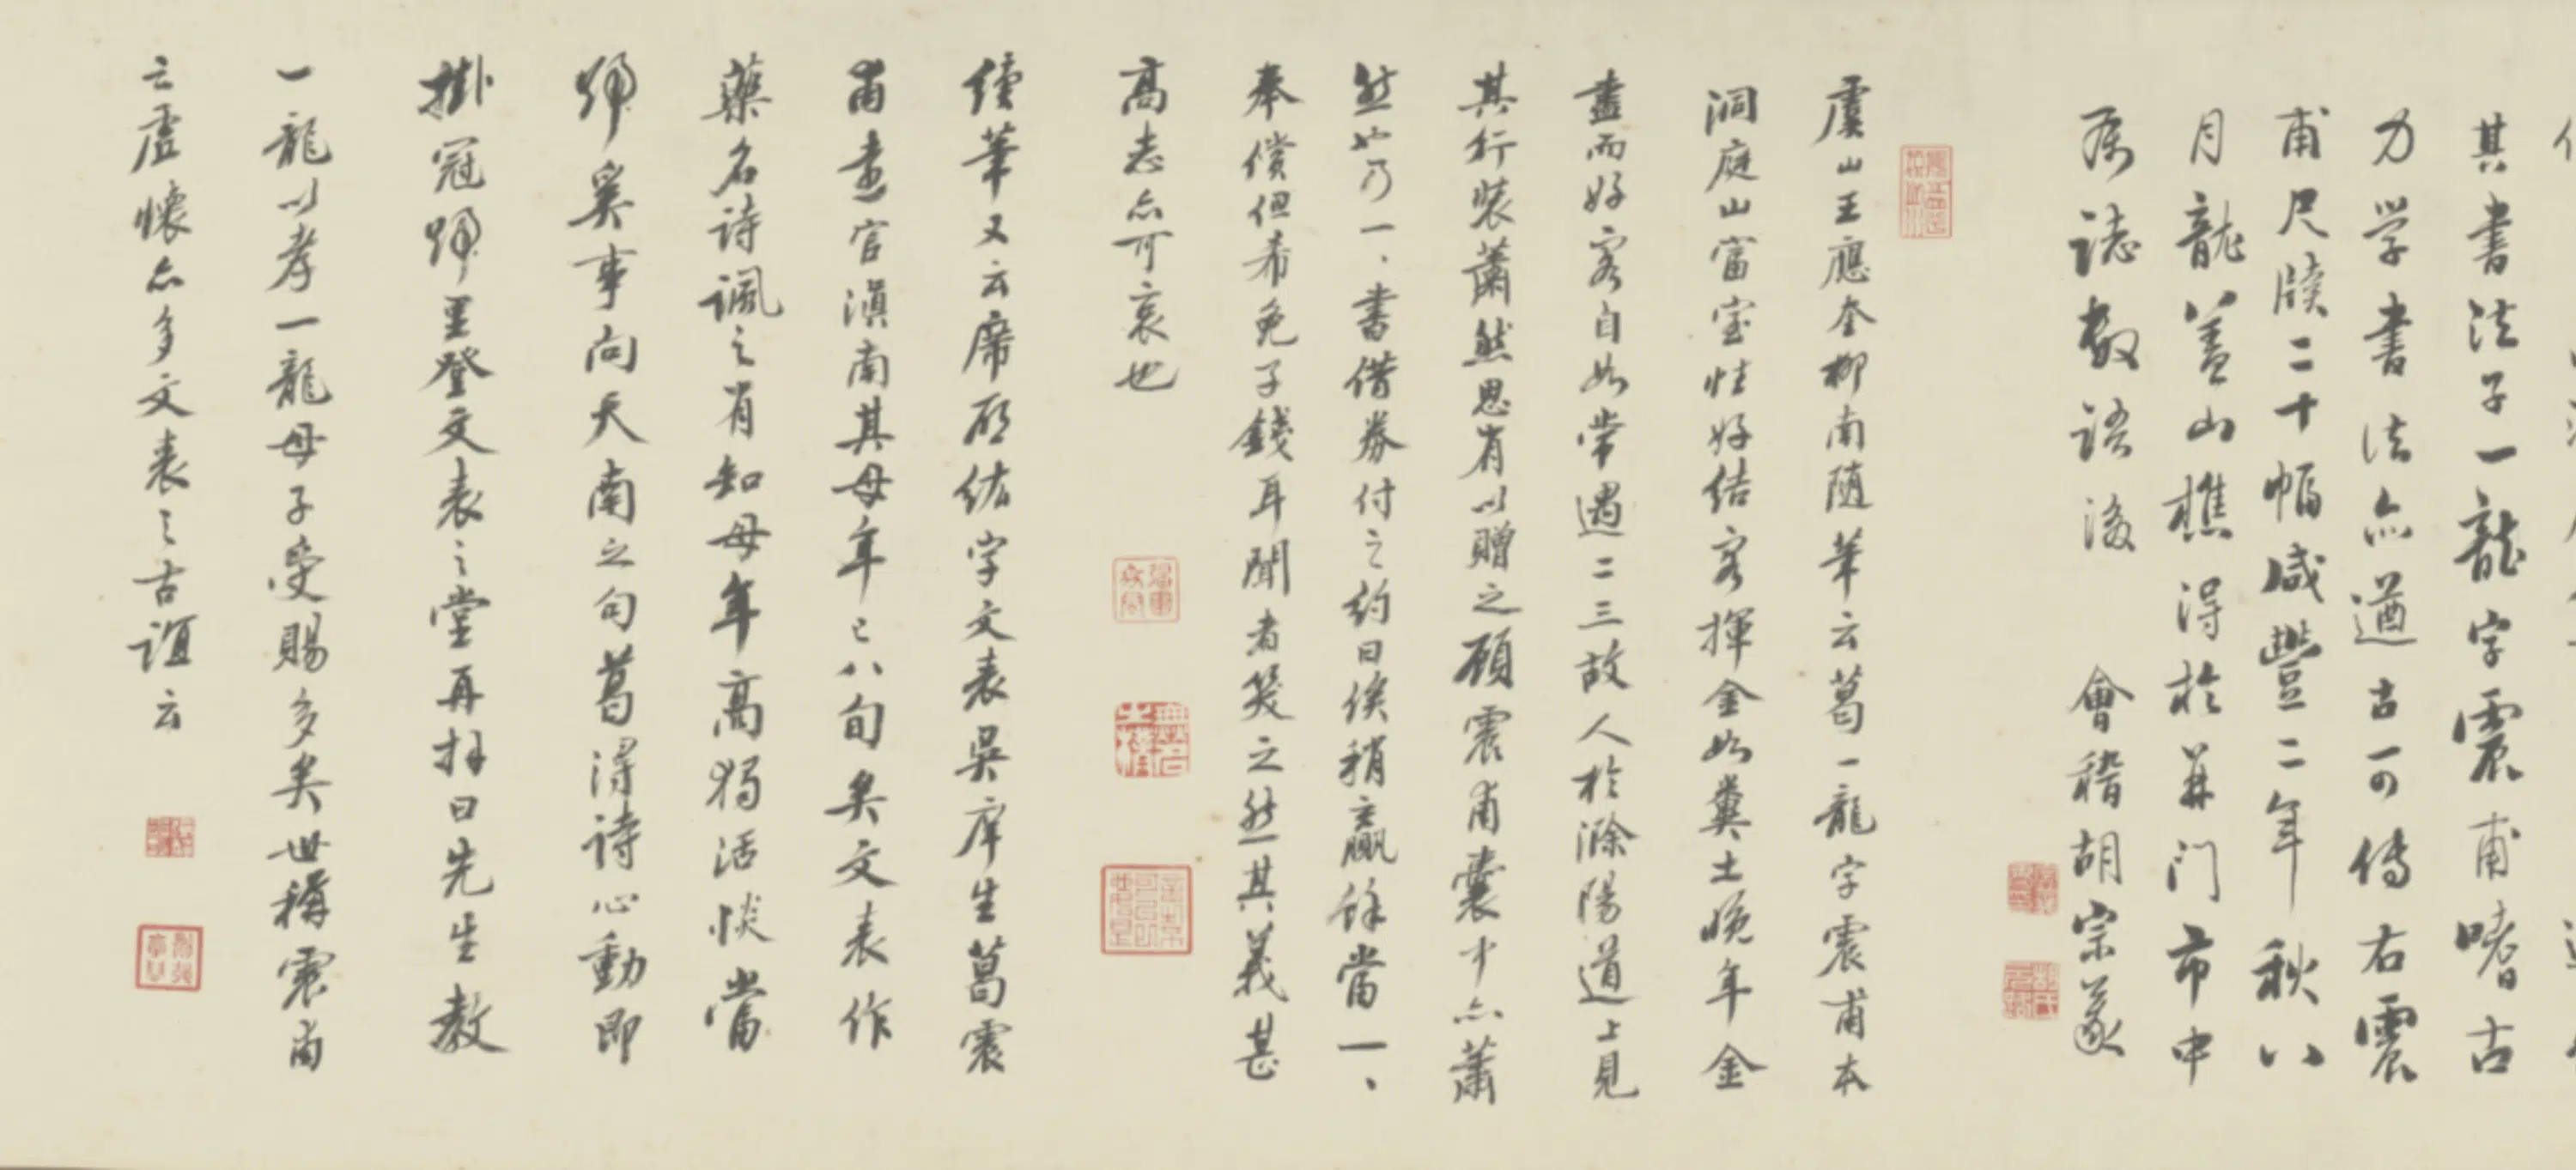 其書法子一龍字震甫嗜古
力学書法亦遒古可傳右震
甫尺牘二十幅咸豐二年秋八
月龍蓋山樵得於葑门市中
為誌數語後 會稽胡宗
虞山王應奎柳南随筆云葛一龍字震甫本
洞庭山富室性好結客揮金如糞土晚年金
盡而好客自如常遇二三故人於滁陽道上見
其行裝蕭然思有以贈之顧震甫囊中亦蕭
然也乃一、書借券付之約曰俟稍贏餘當一、
奉償但希免子錢耳聞者笑之然其義甚
高志亦可哀也
續筆又云席 字文表吳庠生葛震
甫畫官滇南其母年已八旬矣文表作
藥名詩諷之有知母年高獨活惔當
歸奚事向天南之句葛得詩心動即
掛冠歸里登文表之堂再拜曰先生教
一龍以孝一龍母子受賜多矣世稱震甫
之虛懷亦多文表之古誼云